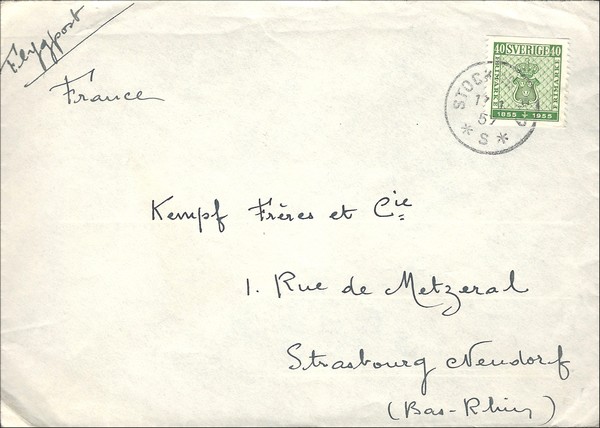 Flygpost
France
40 SVERIGE 40
1855 1955
STOCK
57
* S *
Kempf Frères et Cie
1. Rue de Metzeral
Strasbourg Neudorf
(Bas-Rhin)